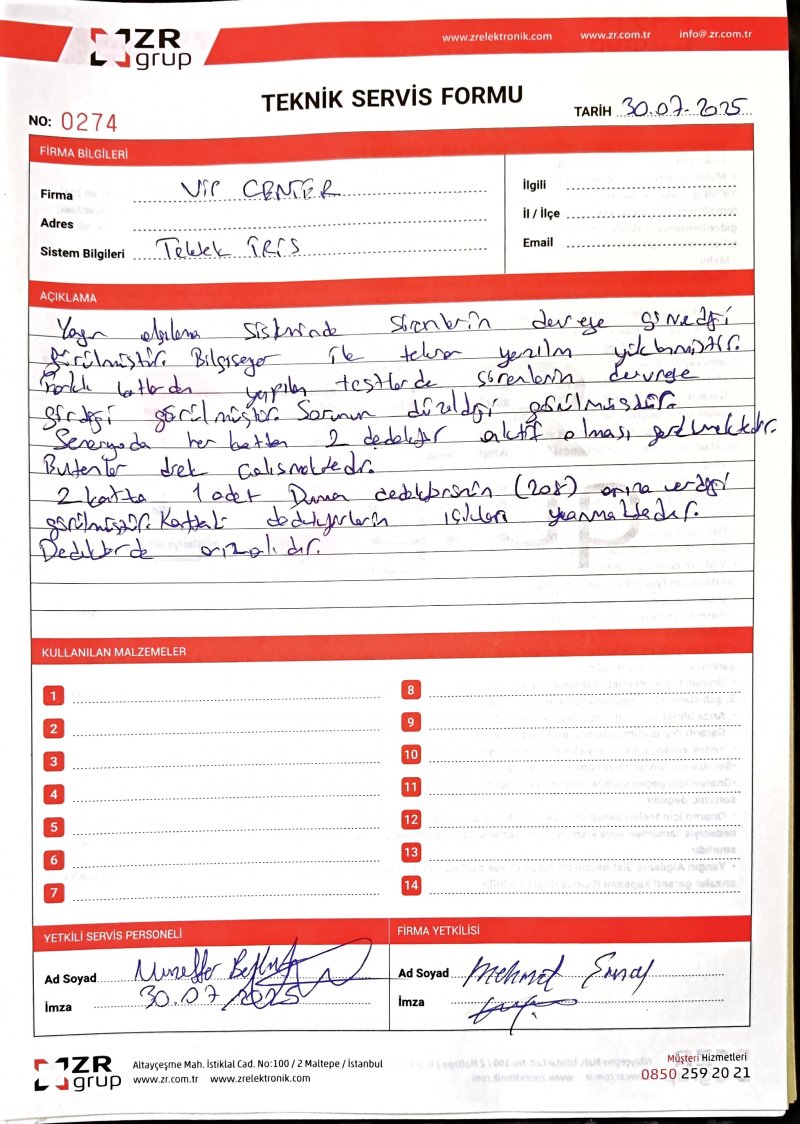 ZR grup
www.zrelektronik.com www.zr.com.tr info@.zr.com.tr
TEKNİK SERVİS FORMU
NO: 0274
TARİH 30.07.2025
FİRMA BİLGİLERİ
Firma VİP CENTER
Adres
Sistem Bilgileri Teknik İRİS
İlgili
İl / İlçe
Email
AÇIKLAMA
Yangın algılama sisteminde sirenlerin devreye girmediği
görülmüştür. Bilgisayar ile tekrar yazılım yüklenmiştir.
Farklı katlardan yapılan testlerde sirenlerin devreye
girdiği görülmüştür. Sorunun düzeldiği görülmüştür.
Senaryoda her kattan 2 dedektör aktif olması gerekmektedir.
Butonlar direk çalışmaktadır.
2 katta 1 adet Duman dedektörünün (208) arıza verdiği
görülmüştür. Kattaki dedektörlerin ışıkları yanmaktadır.
Dedektörde arızalıdır.
KULLANILAN MALZEMELER
1
2
3
4
5
6
7
8
9
10
11
12
13
14
YETKİLİ SERVİS PERSONELİ
Ad Soyad Muzaffer
İmza 30.07.2025
FİRMA YETKİLİSİ
Ad Soyad Mehmet
İmza
ZR grup
Altayçeşme Mah. İstiklal Cad. No:100 / 2 Maltepe / İstanbul
www.zr.com.tr www.zrelektronik.com
Müşteri Hizmetleri
0850 259 20 21